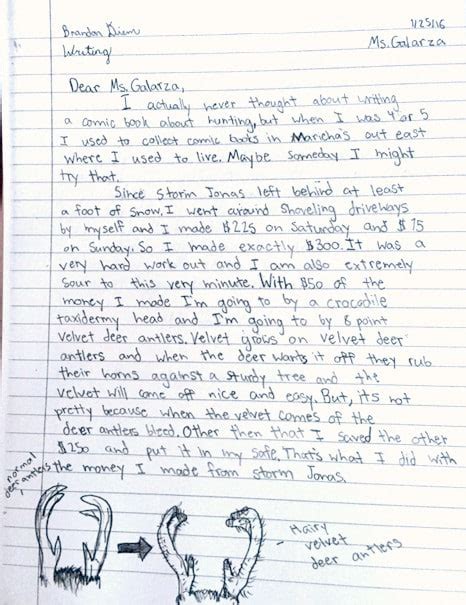 Brandon Diem 1/25/16
Writing Ms. Galarza
Dear Ms. Galarza,
I actually never thought about writing
a comic book about hunting, but when I was 4 or 5
I used to collect comic books in out east
where I used to live. Maybe someday I might
try that.
Since storm Jonas left behind at least
a foot of snow, I went around shoveling driveways
by myself and I made $225 on Saturday and $75
on Sunday. So I made exactly $300. It was a
very hard work out and I am also extremely
sour to this very minute. With $50 of the
money I made I'm going to by a crocodile
taxidermy head and I'm going to by 8 point
velvet deer antlers. Velvet grows on velvet deer
antlers and when the deer wants it off they rub
their horns against a sturdy tree and the
velvet will come off nice and easy. But, its not
pretty because when the velvet comes of the
deer antlers bleed. Other then that I saved the other
$250 and put it in my safe. That's what I did with
the money I made from storm Jonas.
normal
deer antlers
- Hairy
velvet
deer antlers